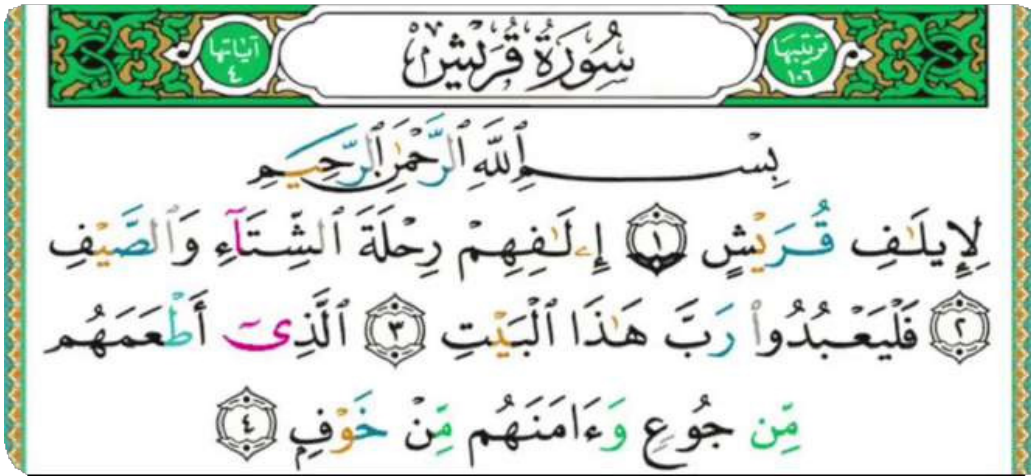 ترتيبها ١٠٦ سُورَةُ قُرَيْشٍ آياتها ٤
بِسْمِ ٱللَّهِ ٱلرَّحْمَٰنِ ٱلرَّحِيمِ
لِإِيلَٰفِ قُرَيْشٍ ١ إِۦلَٰفِهِمْ رِحْلَةَ ٱلشِّتَآءِ وَٱلصَّيْفِ
٢ فَلْيَعْبُدُوا۟ رَبَّ هَٰذَا ٱلْبَيْتِ ٣ ٱلَّذِىٓ أَطْعَمَهُم
مِّن جُوعٍ وَءَامَنَهُم مِّنْ خَوْفٍ ٤